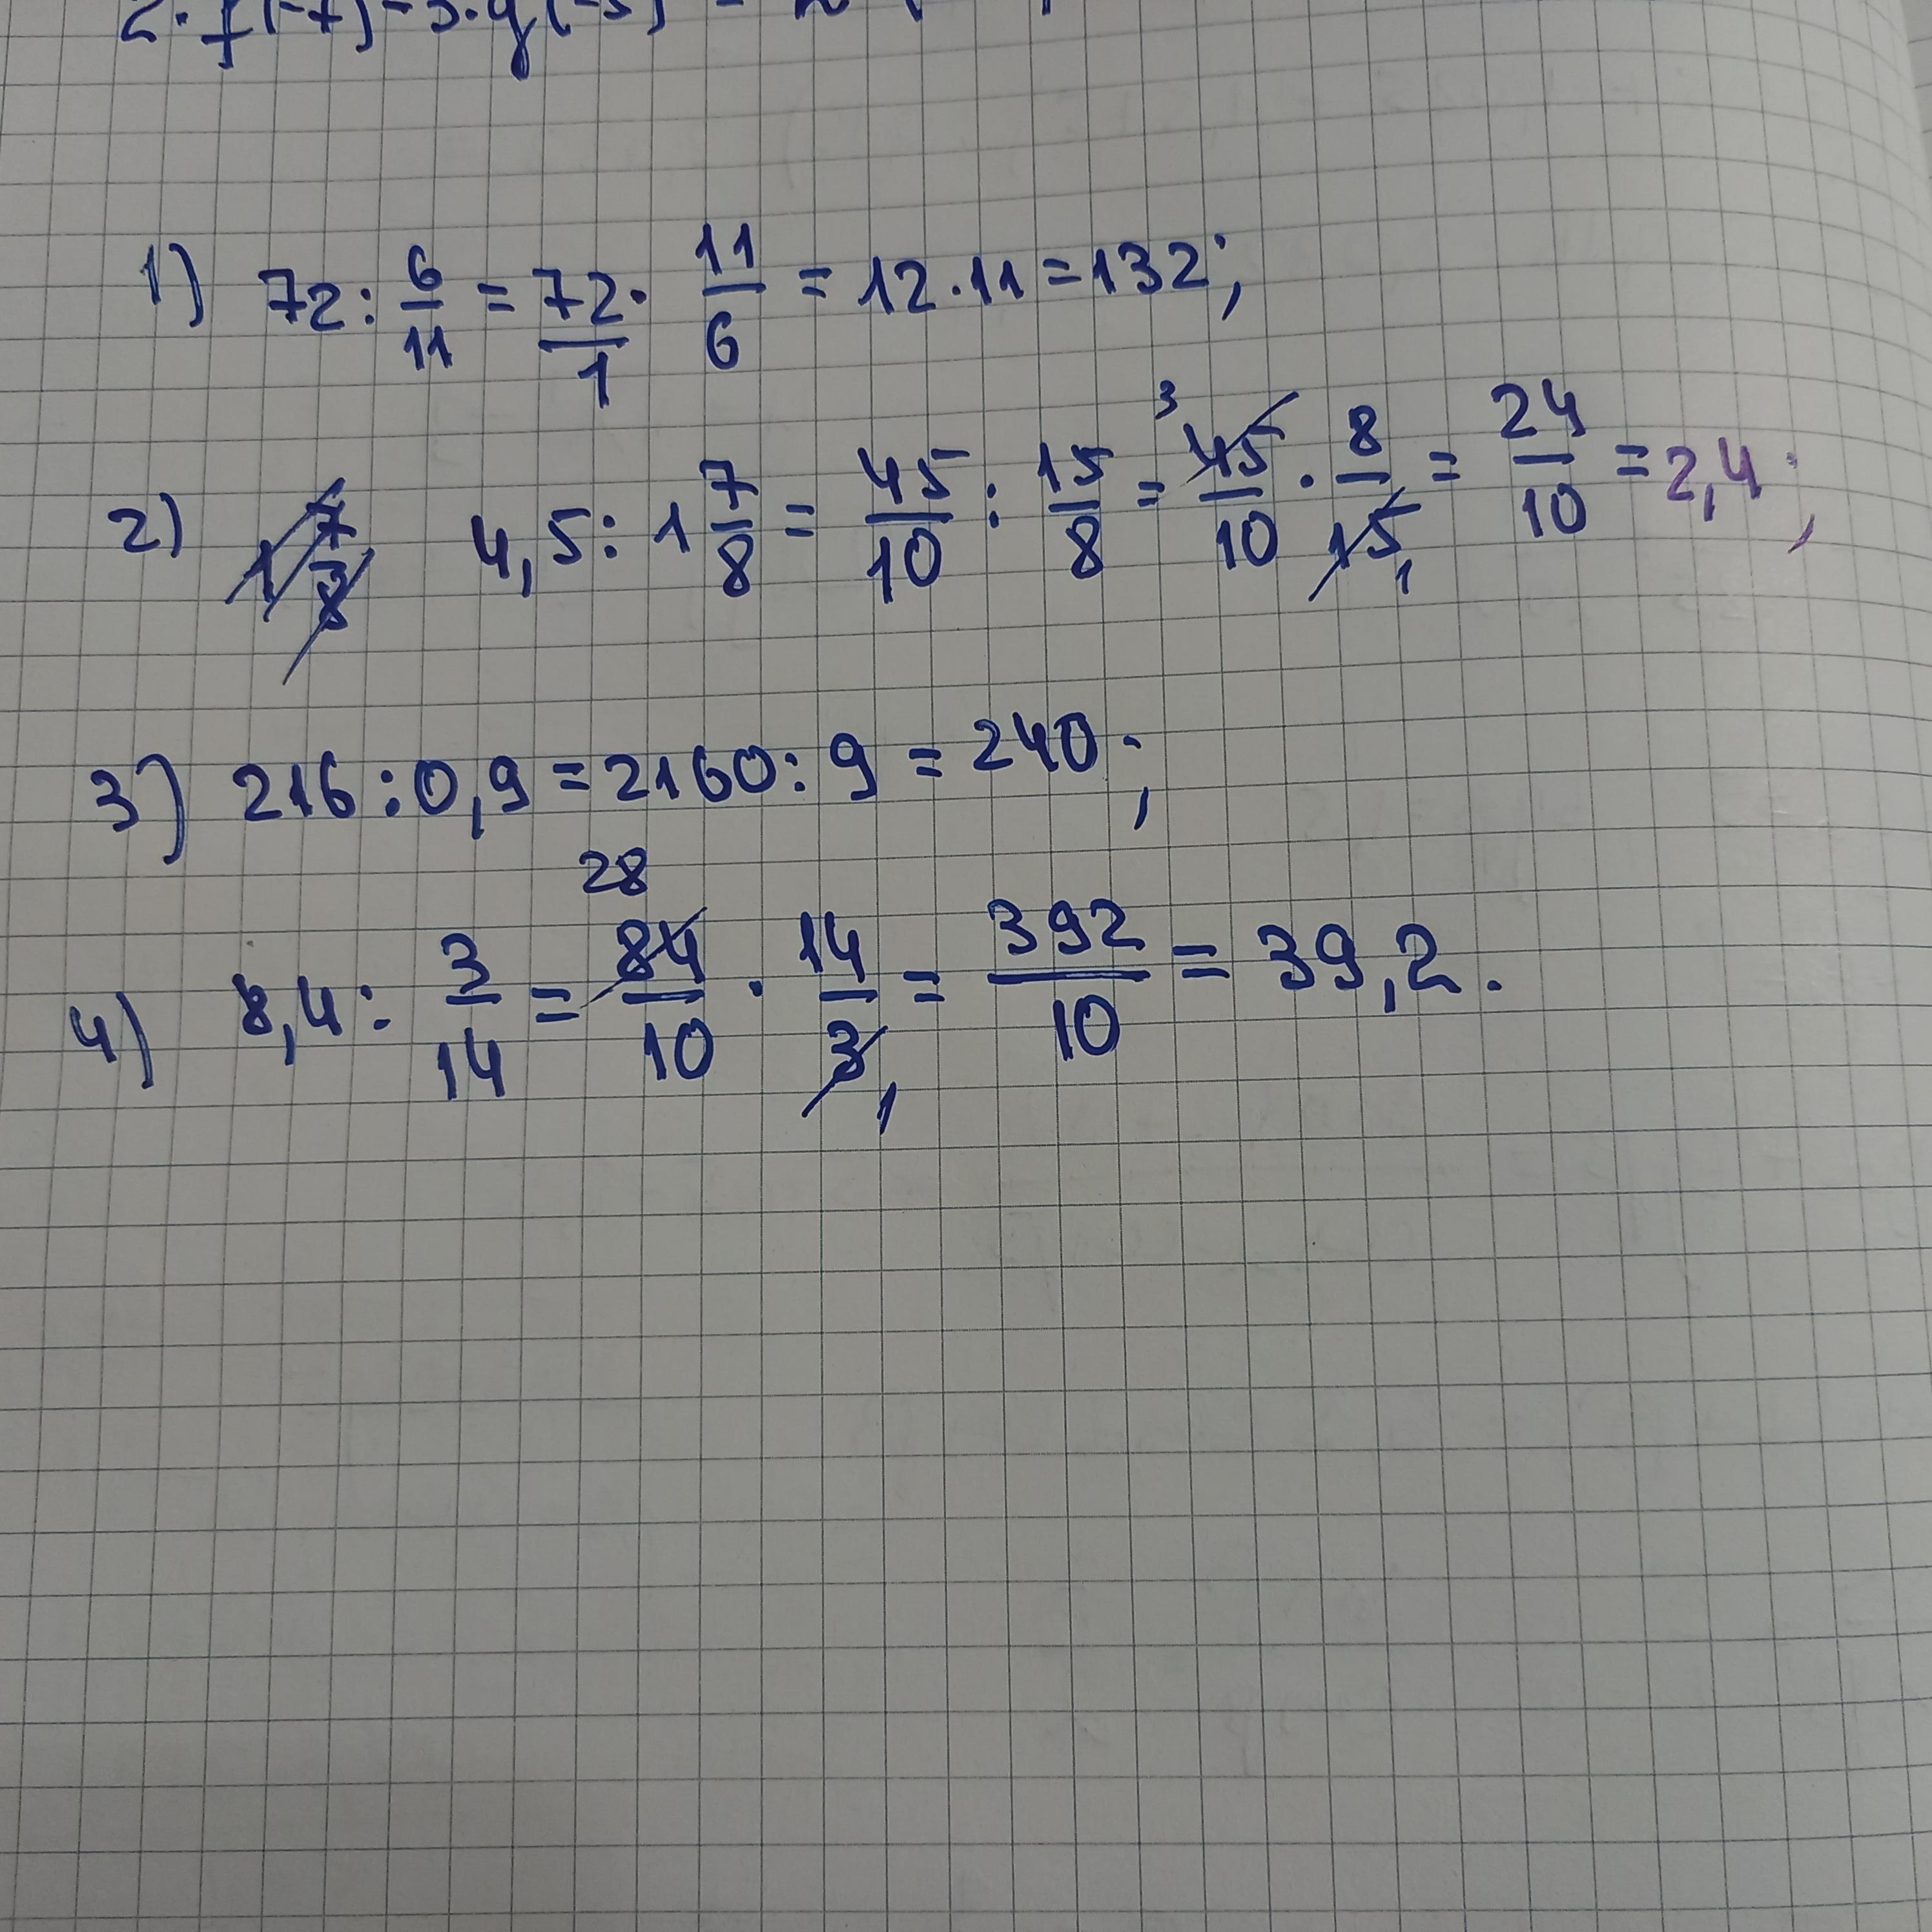 1) 72 : 6/11 = 72/1 · 11/6 = 12 · 11 = 132;
2) 4,5 : 1 7/8 = 45/10 : 15/8 = 3 45/10 · 8/15 1 = 24/10 = 2,4;
3) 216 : 0,9 = 2160 : 9 = 240;
4) 8,4 : 3/14 = 28 84/10 · 14/3 1 = 392/10 = 39,2.